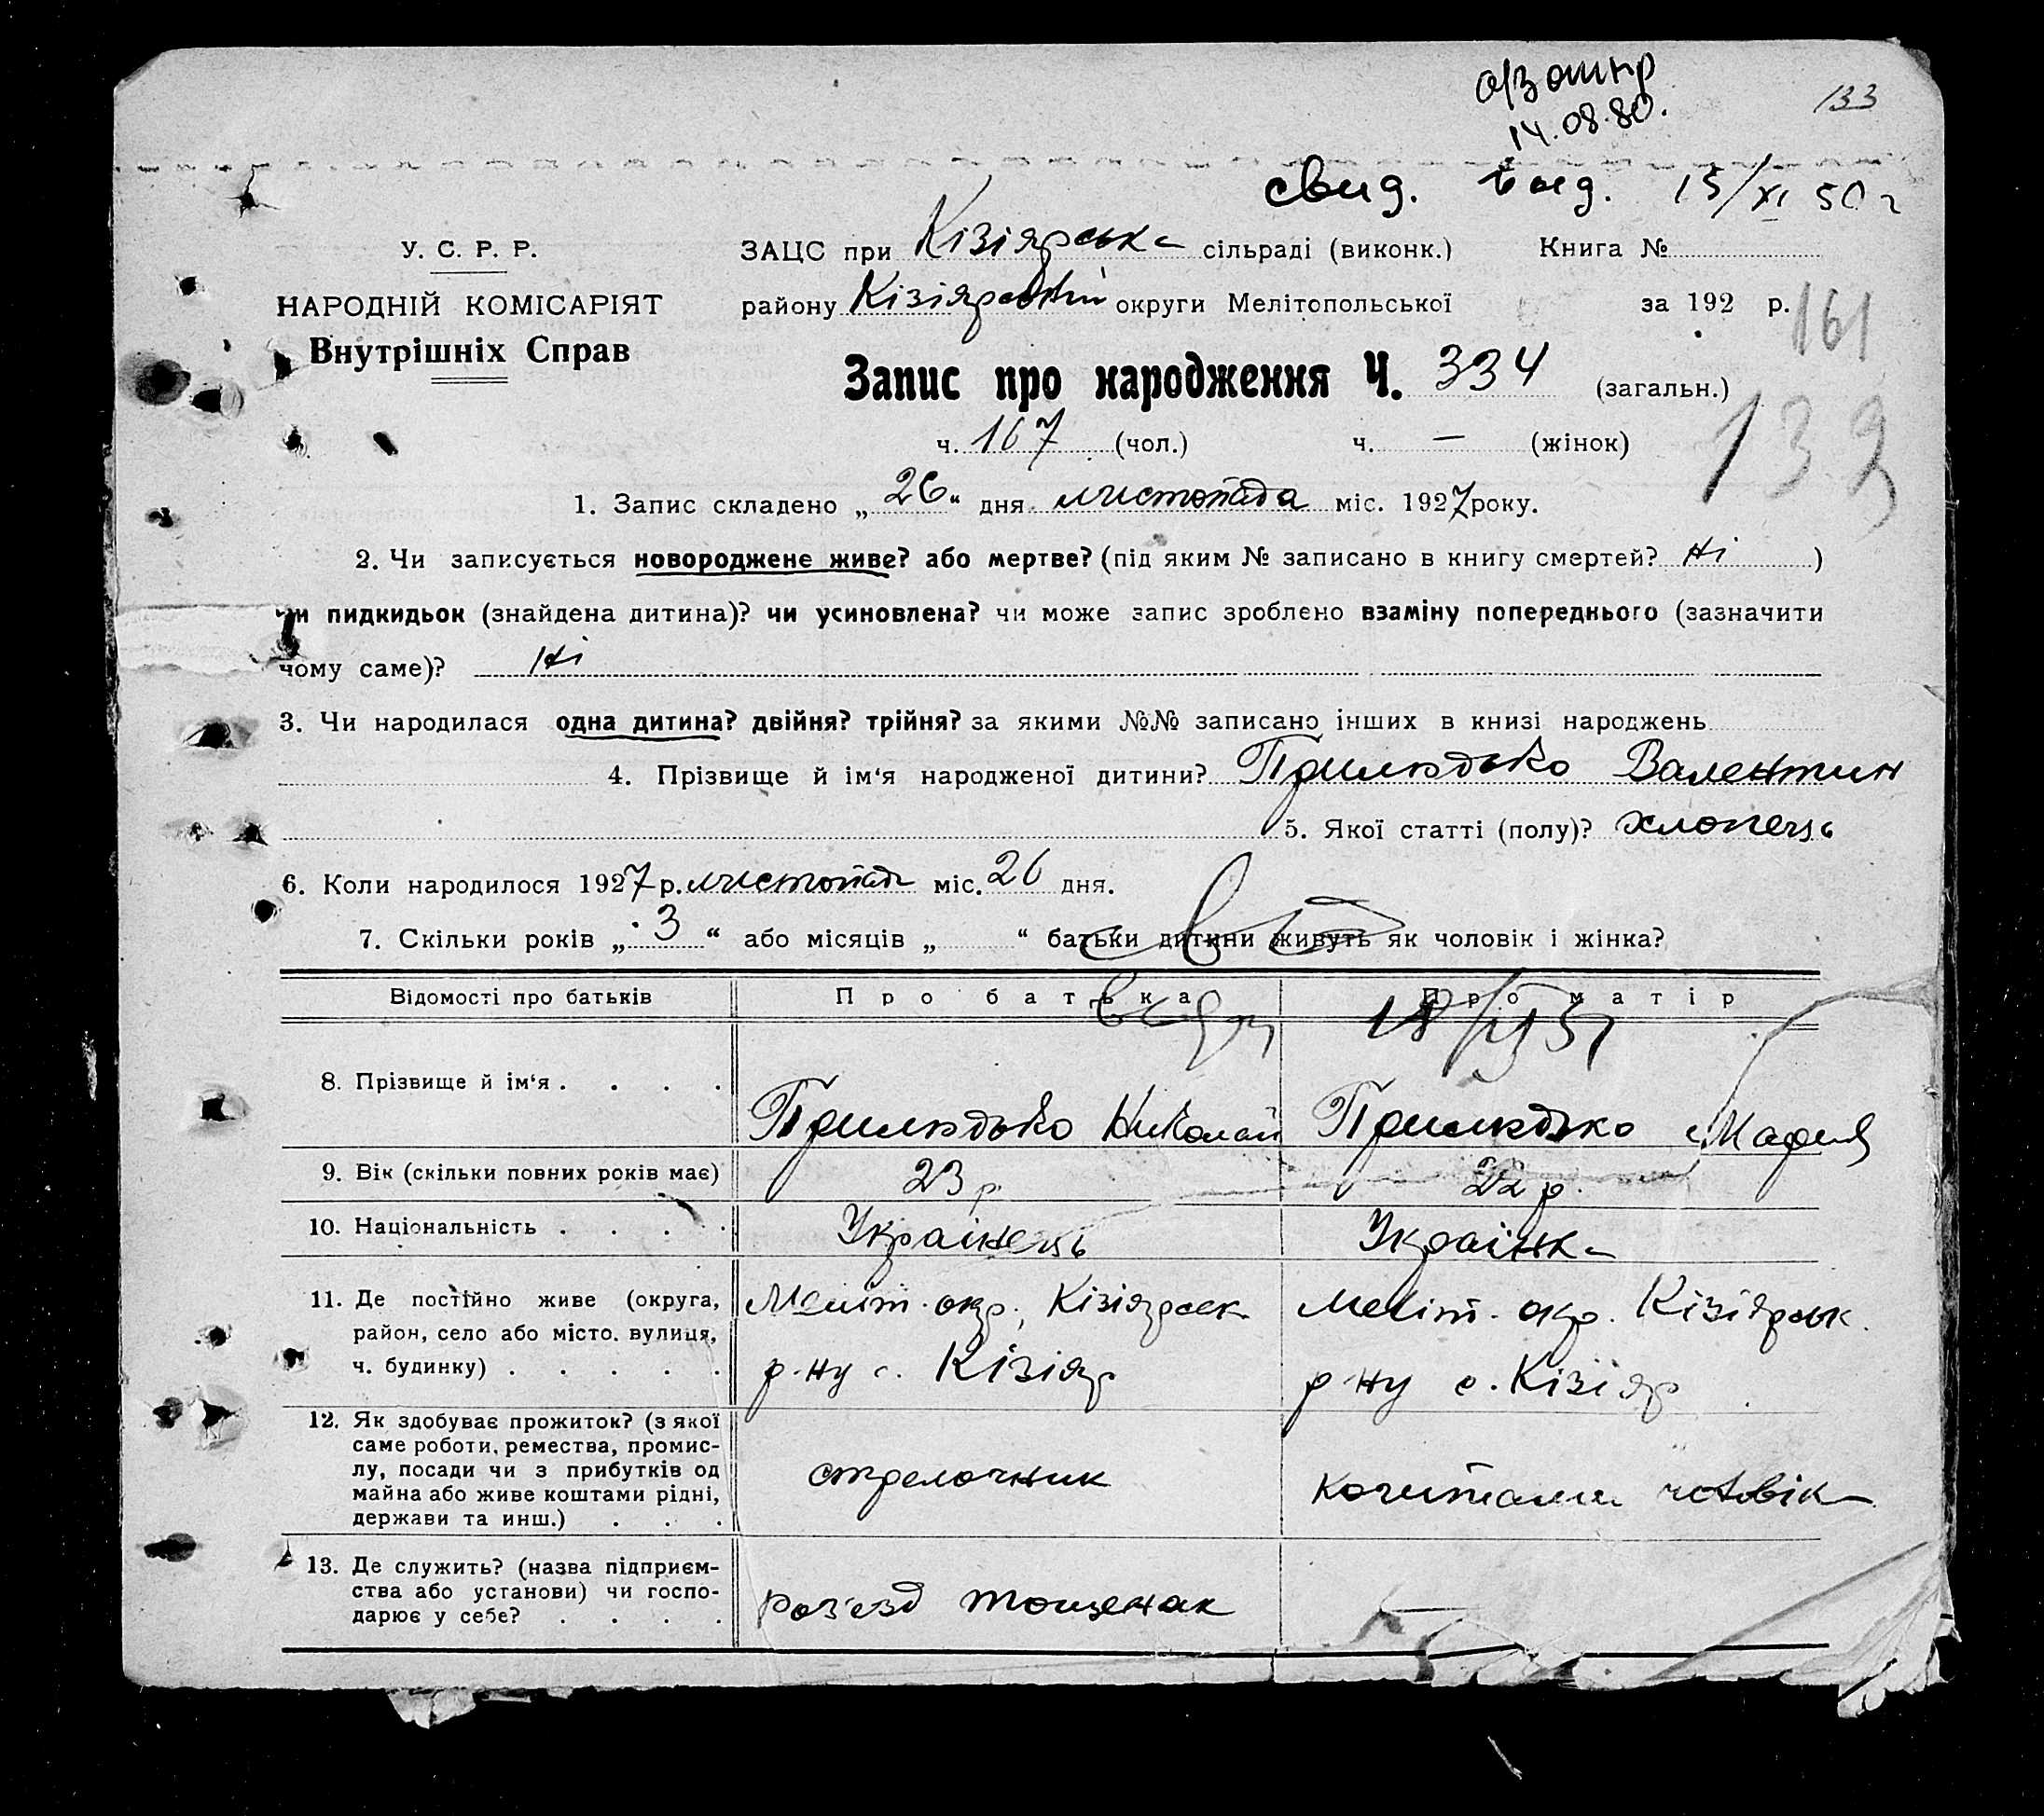 а/з
14.08.80.
133
свид. выд. 15/XI 50 г
У. С. Р. Р.
ЗАЦС при Кізіярська сільраді (виконк.) Книга №
НАРОДНІЙ КОМІСАРІЯТ
району Кізіярський округи Мелітопольської за 192 р.
161
Внутрішніх Справ
Запис про народження Ч. 334 (загальн.)
132
ч. 167 (чол.) ч. — (жінок)
1. Запис складено „26“ дня листопада міс. 1927 року.
2. Чи записується новороджене живе? або мертве? (під яким № записано в книгу смертей? Ні )
чи пидкидьок (знайдена дитина)? чи усиновлена? чи може запис зроблено взаміну попереднього (зазначити
чому саме)? Ні
3. Чи народилася одна дитина? двійня? трійня? за якими №№ записано інших в книзі народжень
4. Прізвище й ім‘я народженої дитини? Прилюдько Валентин
5. Якої статті (полу)? хлопець
6. Коли народилося 1927 р. листопада міс. 26 дня.
7. Скільки років „3“ або місяців „ “ батьки дитини живуть як чоловік і жінка?
Відомості про батьків Про батька Про матір
8. Прізвище й ім‘я . . . .
Прилюдько Николай Прилюдько Мария
9. Вік (скільки повних років має) 23 р. 22 р.
10. Національність . . . . Українець Українка
11. Де постійно живе (округа,
район, село або місто. вулиця,
ч. будинку) . . . . .
Меліт. окр., Кізіярськ
р-ну с. Кізіяр
Меліт. окр. Кізіярськ.
р-ну с. Кізіяр
12. Як здобуває прожиток? (з якої
саме роботи, ремества, промис-
лу, посади чи з прибутків од
майна або живе коштами рідні,
держави та инш.) . . .
стрелочник
коштами чоловіка
13. Де служить? (назва підприєм-
ства або установи) чи госпо-
дарює у себе? . . . .
роз'езд Тащенак
—